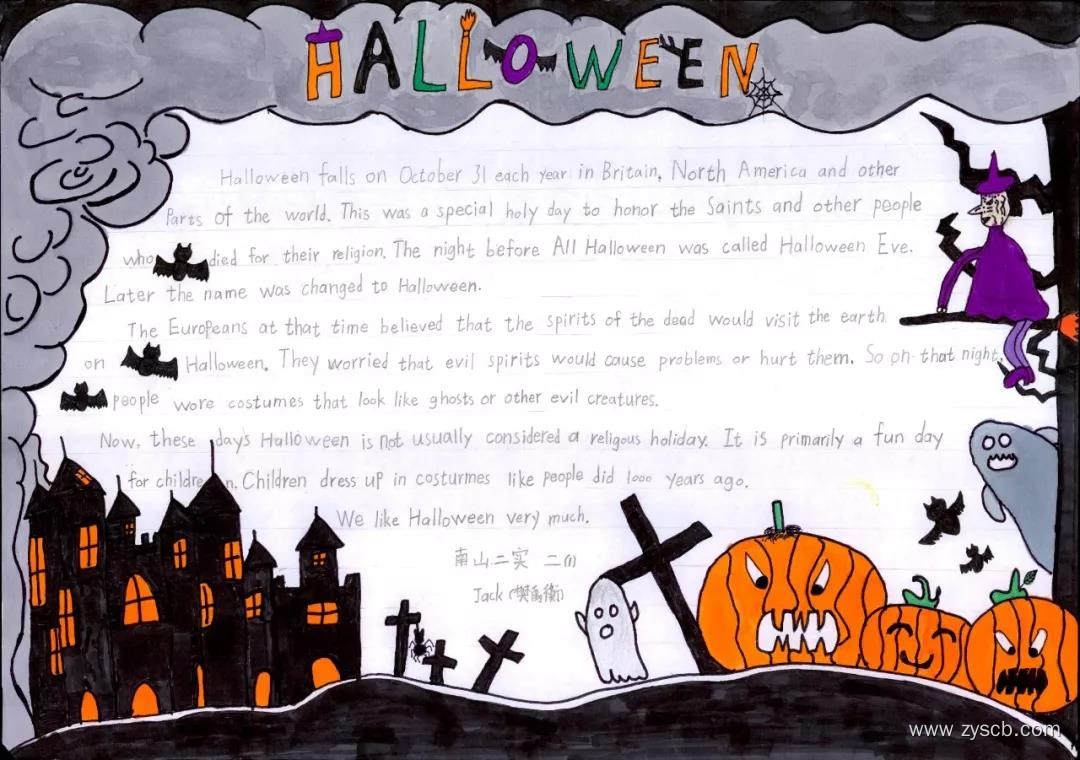 HALLOWEEN
Halloween falls on October 31 each year in Britain, North America and other
Parts of the world. This was a special holy day to honor the Saints and other people
who died for their religion. The night before All Halloween was called Halloween Eve.
Later the name was changed to Halloween.
The Europeans at that time believed that the spirits of the dead would visit the earth
on Halloween. They worried that evil spirits would cause problems or hurt them. So on that night,
people wore costumes that look like ghosts or other evil creatures.
Now, these days Halloween is not usually considered a religous holiday. It is primarily a fun day
for children. Children dress up in costurmes like people did 1000 years ago.
We like Halloween very much.
南山二实 二(1)
Jack
www.zyscb.com